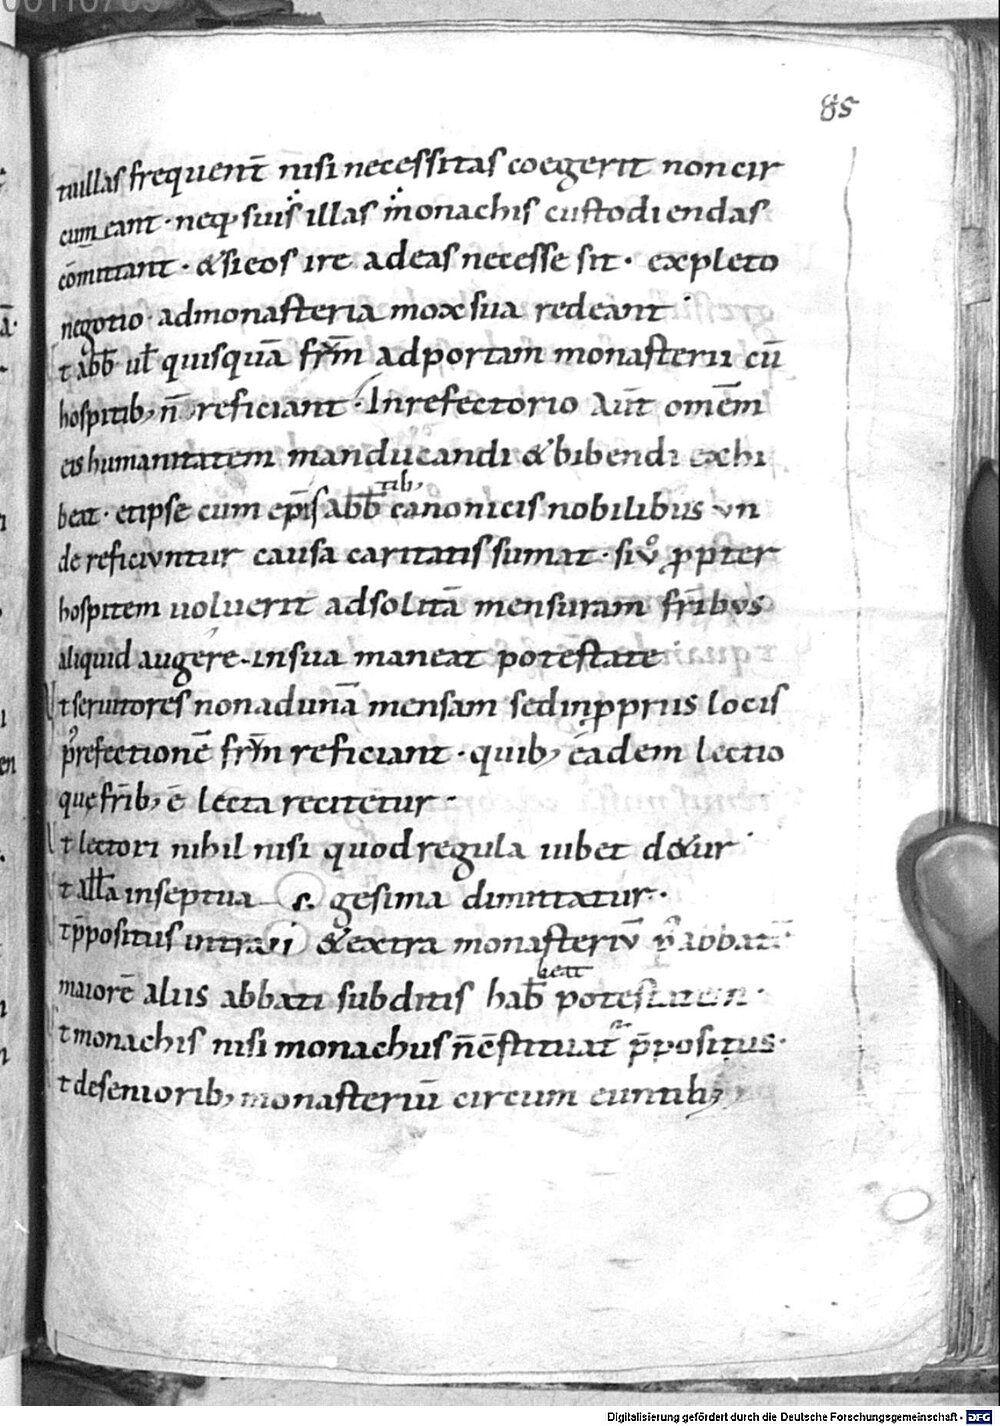 85
nullas frequent̄ nisi necessitas coegerit non cir
cum eant · neq; suis illas monachis custodiendas
cōmittant · & si eos ire ad eas necesse sit · expleto
negotio · ad monasteria mox sua redeant ·
t abb̄ ul̄ quisquā fr̄m ad portam monasterii cū
hospitib; n̄ reficiant · In refectorio aūt omēm
eis humanitatem manducandi & bibendi exhi
beat · et ipse cum ep̄is abb̄tib; canonicis nobilibus un
de reficiuntur causa caritatis sumat · si uº ꝓpter
hospitem uoluerit ad solitā mensuram fr̄ibus
aliquid augere · in sua maneat potestate
t seruitores non ad unā mensam sed in ꝓpriis locis
p̄ refectionē fr̄m reficiant · quib; eadem lectio
quę fr̄ib; ē lecta recitetur ·
t lectori nihil nisi quod regula iubet detur
t all̄a in septuagesima dimittatur ·
t p̄positus intra & extra monasteriū p̄ abbatē
maiorē aliis abbati subditis hab̄beat potestatem ·
t monachis nisi monachus n̄ c̄stituat̄ p̄positus ·
t de seniorib; monasteriū circum euntib;
Digitalisierung gefördert durch die Deutsche Forschungsgemeinschaft · DFG